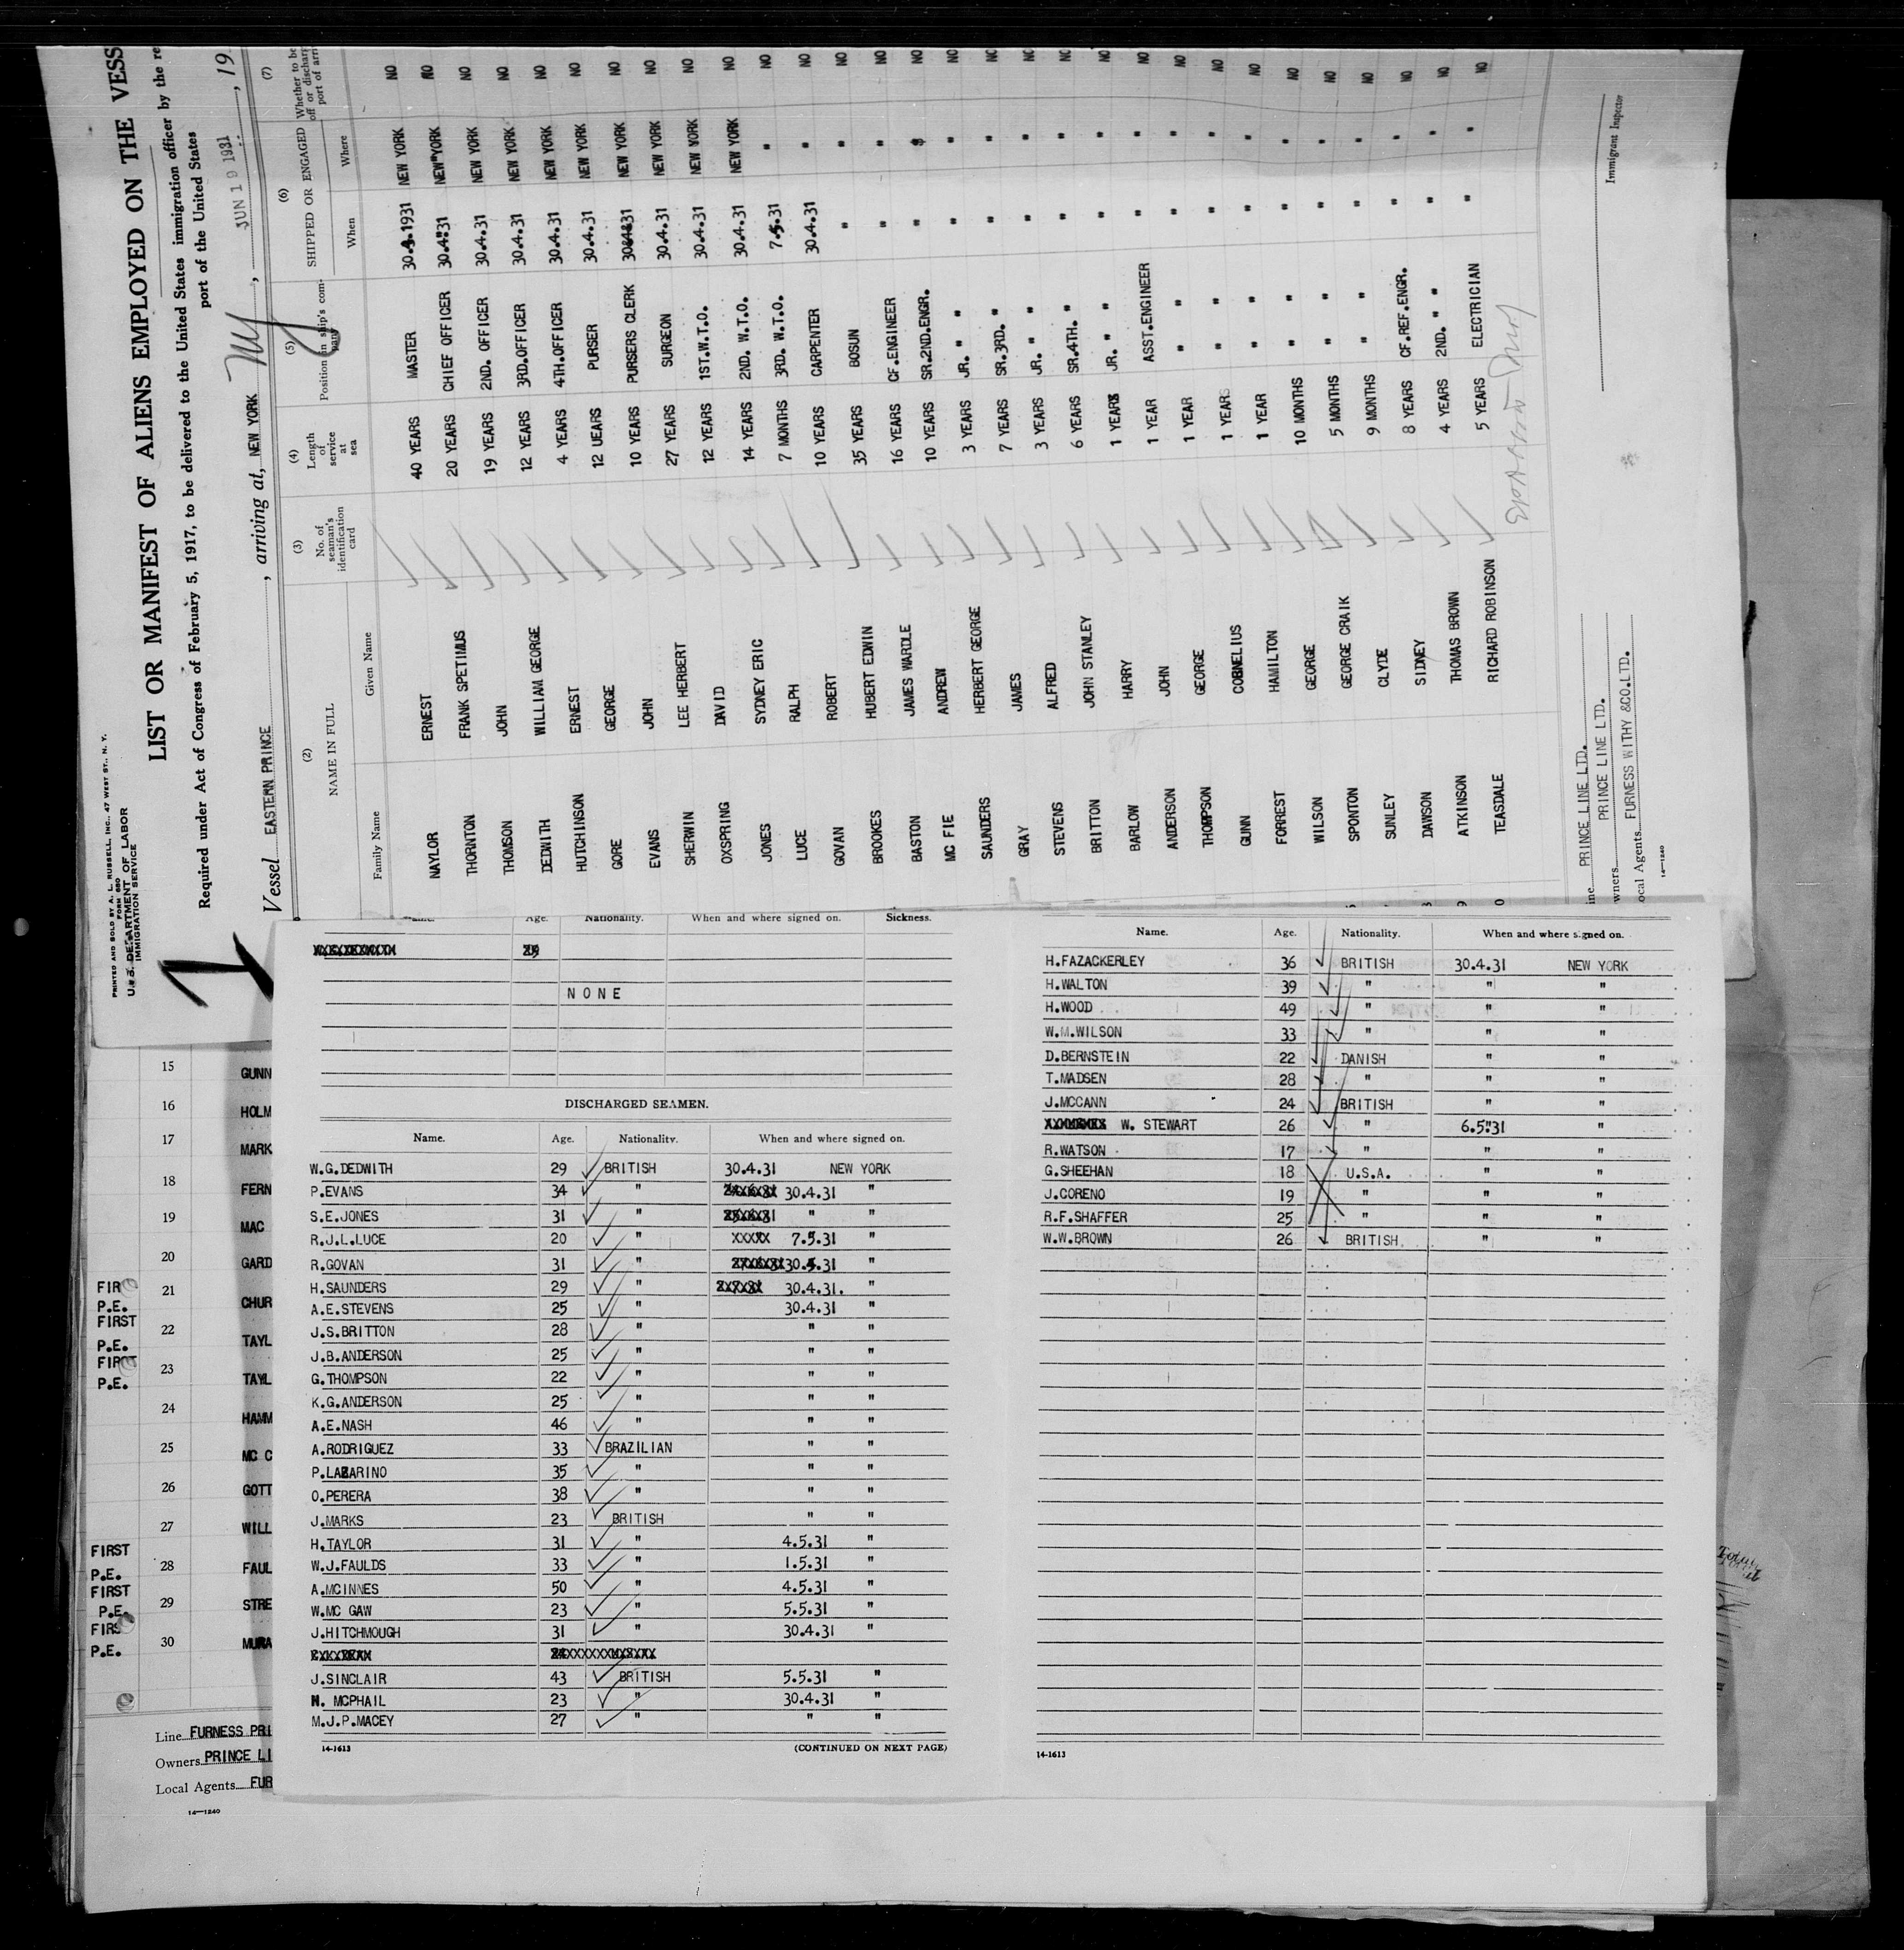 PRINTED AND SOLD BY A. L. RUSSELL, INC., 47 WEST ST., N. Y.
FORM 680
U.S. DEPARTMENT OF LABOR
IMMIGRATION SERVICE
LIST OR MANIFEST OF ALIENS EMPLOYED ON THE VESS
Required under Act of Congress of February 5, 1917, to be delivered to the United States immigration officer by the re
port of the United States
Vessel EASTERN PRINCE, arriving at, NEW YORK NY, JUN 19 1931, 19
(2) NAME IN FULL (3) No. of seaman's identification card (4) Length of service at sea (5) Position in ship's company (6) SHIPPED OR ENGAGED (7) Whether to be off or discharg port of arri
Family Name Given Name When Where
NAYLOR ERNEST 40 YEARS MASTER 30.4.1931 NEW YORK NO
THORNTON FRANK SPETIMUS 20 YEARS CHIEF OFFICER 30.4.31 NEW YORK NO
THOMSON JOHN 19 YEARS 2ND. OFFICER 30.4.31 NEW YORK NO
DEDWITH WILLIAM GEORGE 12 YEARS 3RD.OFFICER 30.4.31 NEW YORK NO
HUTCHINSON ERNEST 4 YEARS 4TH.OFFICER 30.4.31 NEW YORK NO
GORE GEORGE 12 UEARS PURSER 30.4.31 NEW YORK NO
EVANS JOHN 10 YEARS PURSERS CLERK 30&4&31 NEW YORK NO
SHERWIN LEE HERBERT 27 YEARS SURGEON 30.4.31 NEW YORK NO
OXSPRING DAVID 12 YEARS 1ST.W.T.O. 30.4.31 NEW YORK NO
JONES SYDNEY ERIC 14 YEARS 2ND. W.T.O. 30.4.31 NEW YORK NO
LUCE RALPH 7 MONTHS 3RD. W.T.O. 7.5.31 " NO
GOVAN ROBERT 10 YEARS CARPENTER 30.4.31 " NO
BROOKES HUBERT EDWIN 35 YEARS BOSUN " " NO
BASTON JAMES WARDLE 16 YEARS CF.ENGINEER " " NO
MC FIE ANDREW 10 YEARS SR.2ND.ENGR. " " NO
SAUNDERS HERBERT GEORGE 3 YEARS JR. " " " " NO
GRAY JAMES 7 YEARS SR.3RD. " " " NO
STEVENS ALFRED 3 YEARS JR. " " " " NO
BRITTON JOHN STANLEY 6 YEARS SR.4TH. " " " NO
BARLOW HARRY 1 YEARS JR. " " " " NO
ANDERSON JOHN 1 YEAR ASST.ENGINEER " " NO
THOMPSON GEORGE 1 YEAR " " " " NO
GUNN CORNELIUS 1 YEAR " " " " NO
FORREST HAMILTON 1 YEAR " " " " NO
WILSON GEORGE 10 MONTHS " " " " NO
SPONTON GEORGE CRAIK 5 MONTHS " " " " NO
SUNLEY CLYDE 9 MONTHS " " " " NO
DAWSON SIDNEY 8 YEARS CF.REF.ENGR. " " NO
ATKINSON THOMAS BROWN 4 YEARS 2ND. " " " " NO
TEASDALE RICHARD ROBINSON 5 YEARS ELECTRICIAN " " NO
ine PRINCE LINE LTD.
wners PRINCE LINE LTD.
ocal Agents FURNESS WITHY &CO.LTD.
14—1240
Immigrant Inspector
Age. Nationality. When and where signed on. Sickness.
NONE
DISCHARGED SEAMEN.
Name. Age. Nationality. When and where signed on.
W.G.DEDWITH 29 BRITISH 30.4.31 NEW YORK
P.EVANS 34 " 30.4.31 "
S.E.JONES 31 " " "
R.J.L.LUCE 20 " XXXXX 7.5.31 "
R.GOVAN 31 " 30.4.31 "
H.SAUNDERS 29 " 30.4.31. "
A.E.STEVENS 25 " 30.4.31 "
J.S.BRITTON 28 " " "
J.B.ANDERSON 25 " " "
G.THOMPSON 22 " " "
K.G.ANDERSON 25 " " "
A.E.NASH 46 " " "
A.RODRIGUEZ 33 BRAZILIAN " "
P.LAZARINO 35 " " "
O.PERERA 38 " " "
J.MARKS 23 BRITISH " "
H.TAYLOR 31 " 4.5.31 "
W.J.FAULDS 33 " 1.5.31 "
A.MCINNES 50 " 4.5.31 "
W.MC GAW 23 " 5.5.31 "
J.HITCHMOUGH 31 " 30.4.31 "
J.SINCLAIR 43 BRITISH 5.5.31 "
N. MCPHAIL 23 " 30.4.31 "
M.J.P.MACEY 27 " " "
14-1613 (CONTINUED ON NEXT PAGE)
Name. Age. Nationality. When and where signed on.
H.FAZACKERLEY 36 BRITISH 30.4.31 NEW YORK
H.WALTON 39 " " "
H.WOOD 49 " " "
W.M.WILSON 33 " " "
D.BERNSTEIN 22 DANISH " "
T.MADSEN 28 " " "
J.MCCANN 24 BRITISH " "
W. STEWART 26 " 6.5.31 "
R.WATSON 17 " " "
G.SHEEHAN 18 U.S.A. " "
J.CORENO 19 " " "
R.F.SHAFFER 25 " " "
W.W.BROWN 26 BRITISH " "
14-1613
15 GUNN
16 HOLM
17 MARK
18 FERN
19 MAC
20 GARD
FIR P.E. 21 CHUR
FIRST P.E. 22 TAYL
FIRST P.E. 23 TAYL
24 HAMM
25 MC C
26 GOTT
27 WILL
FIRST P.E. 28 FAUL
FIRST P.E. 29 STRE
FIRS P.E. 30 MURA
Line FURNESS PRI
Owners PRINCE LI
Local Agents FUR
14—1240